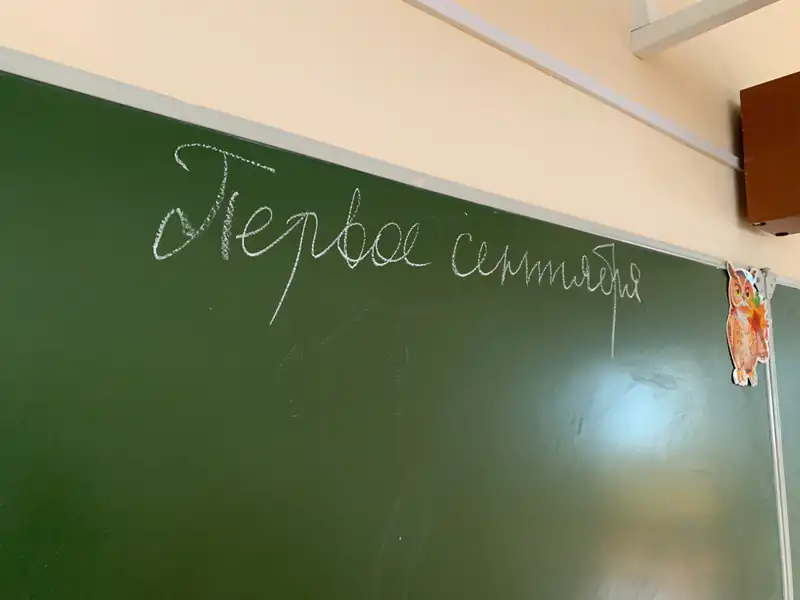 Первое сентября